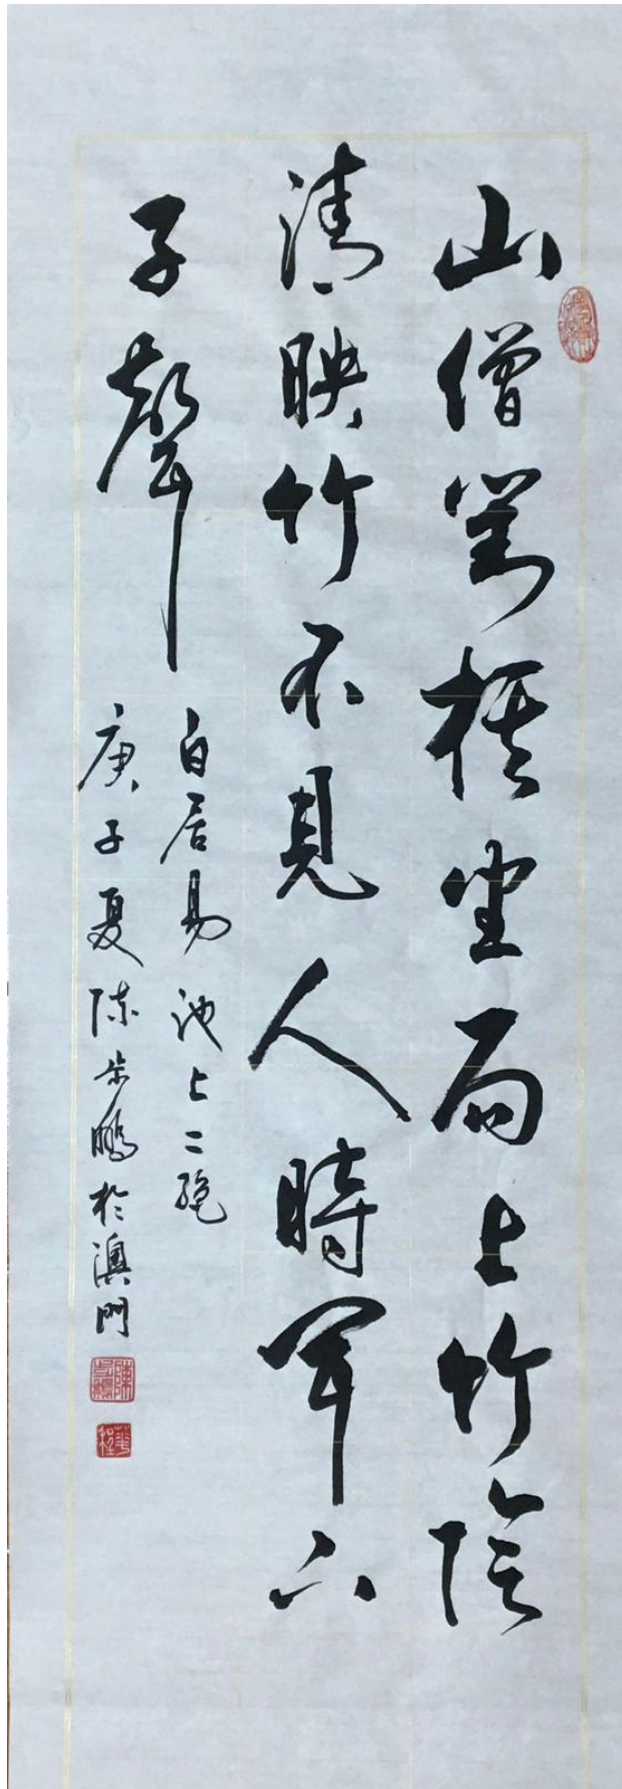 山僧對棋坐局上竹陰
清映竹不見人時聞下
子聲
白居易池上二絕
庚子夏陳步鵬於澳門